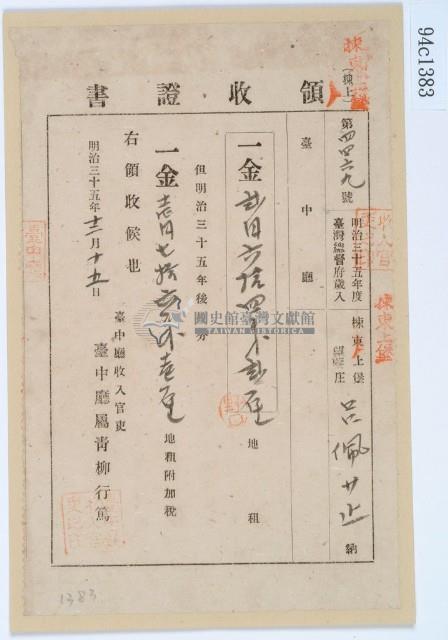 領收證書
第四四六九號
(棟上)
明治三十五年度
臺灣總督府歲入
棟東上堡
庄
呂佩廿止
納
臺中廳
一金貳円六拾四錢貳厘
地租
但明治三十五年後 分
一金壱円七拾六錢壱厘
地租附加稅
右領收候也
明治三十五年十二月十五日
臺中廳收入官吏
臺中廳屬青柳行篤
棟東上堡
國史館臺灣文獻館
TAIWAN HISTORICA
94c1383
1383